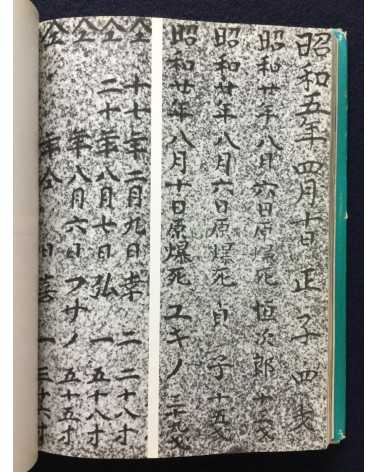 昭和五年四月十日正子四才
昭和廿年八月六日原爆死恒次郎十二才
昭和廿年八月六日原爆死貞子十五才
昭和廿年八月十日原爆死ユキノ三十九才
仝十七年二月九日栄二二十八才
仝二十年八月七日弘一五十八才
仝年八月六日フサノ五十五才
仝年仝日喜一三十六才